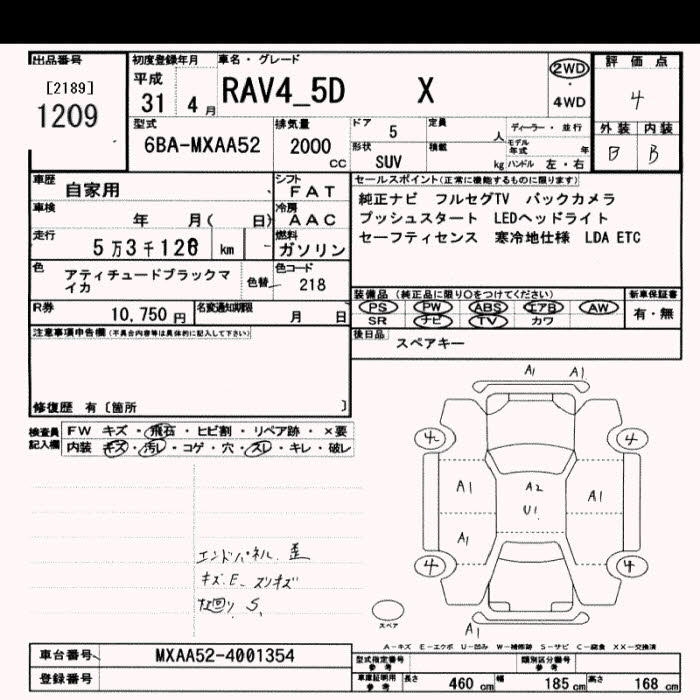 出品番号
[2189]
1209
初度登録年月
平成
31年 4月
車名・グレード
RAV4_5D X
2WD
・
4WD
評価点
4
外装 内装
B B
型式
6BA-MXAA52
排気量
2000
CC
ドア 5
定員 人
形状 SUV
積載 kg
ディーラー・並行
モデル年式 年
ハンドル 左・右
車歴 自家用
シフト FAT
車検 年 月( 日)
冷房 AAC
走行 5万3千128 km
燃料 ガソリン
色 アティチュードブラックマイカ
色替
色コード 218
R券 10,750円
名変通知期限 月 日
セールスポイント(正常に機能するものに限ります)
純正ナビ フルセグTV バックカメラ
プッシュスタート LEDヘッドライト
セーフティセンス 寒冷地仕様 LDA ETC
装備品(純正品に限り〇をつけてください)
PS PW ABS エアB AW
SR ナビ TV カワ
新車保証書
有・無
後日品 スペアキー
注意事項申告欄(不具合内容等は具体的に記入して下さい)
修復歴 有〔箇所 〕
検査員記入欄
FW キズ・飛石・ヒビ割・リペア跡・×要
内装 キズ・汚レ・コゲ・穴・スレ・キレ・破レ
A1 A1
4 4
A1 A2 A1
U1
A1
4 4
A1
スペア
エンドパネル 歪
キズ.E. スリキズ
下回り S.
A-キズ E-エクボ U-凹み W-補修跡 S-サビ C-腐食 XX-交換済
車台番号 MXAA52-4001354
登録番号
型式指定番号 参考
類別区分番号 参考
車庫証明用 参考
長さ 460 cm 幅 185 cm 高さ 168 cm